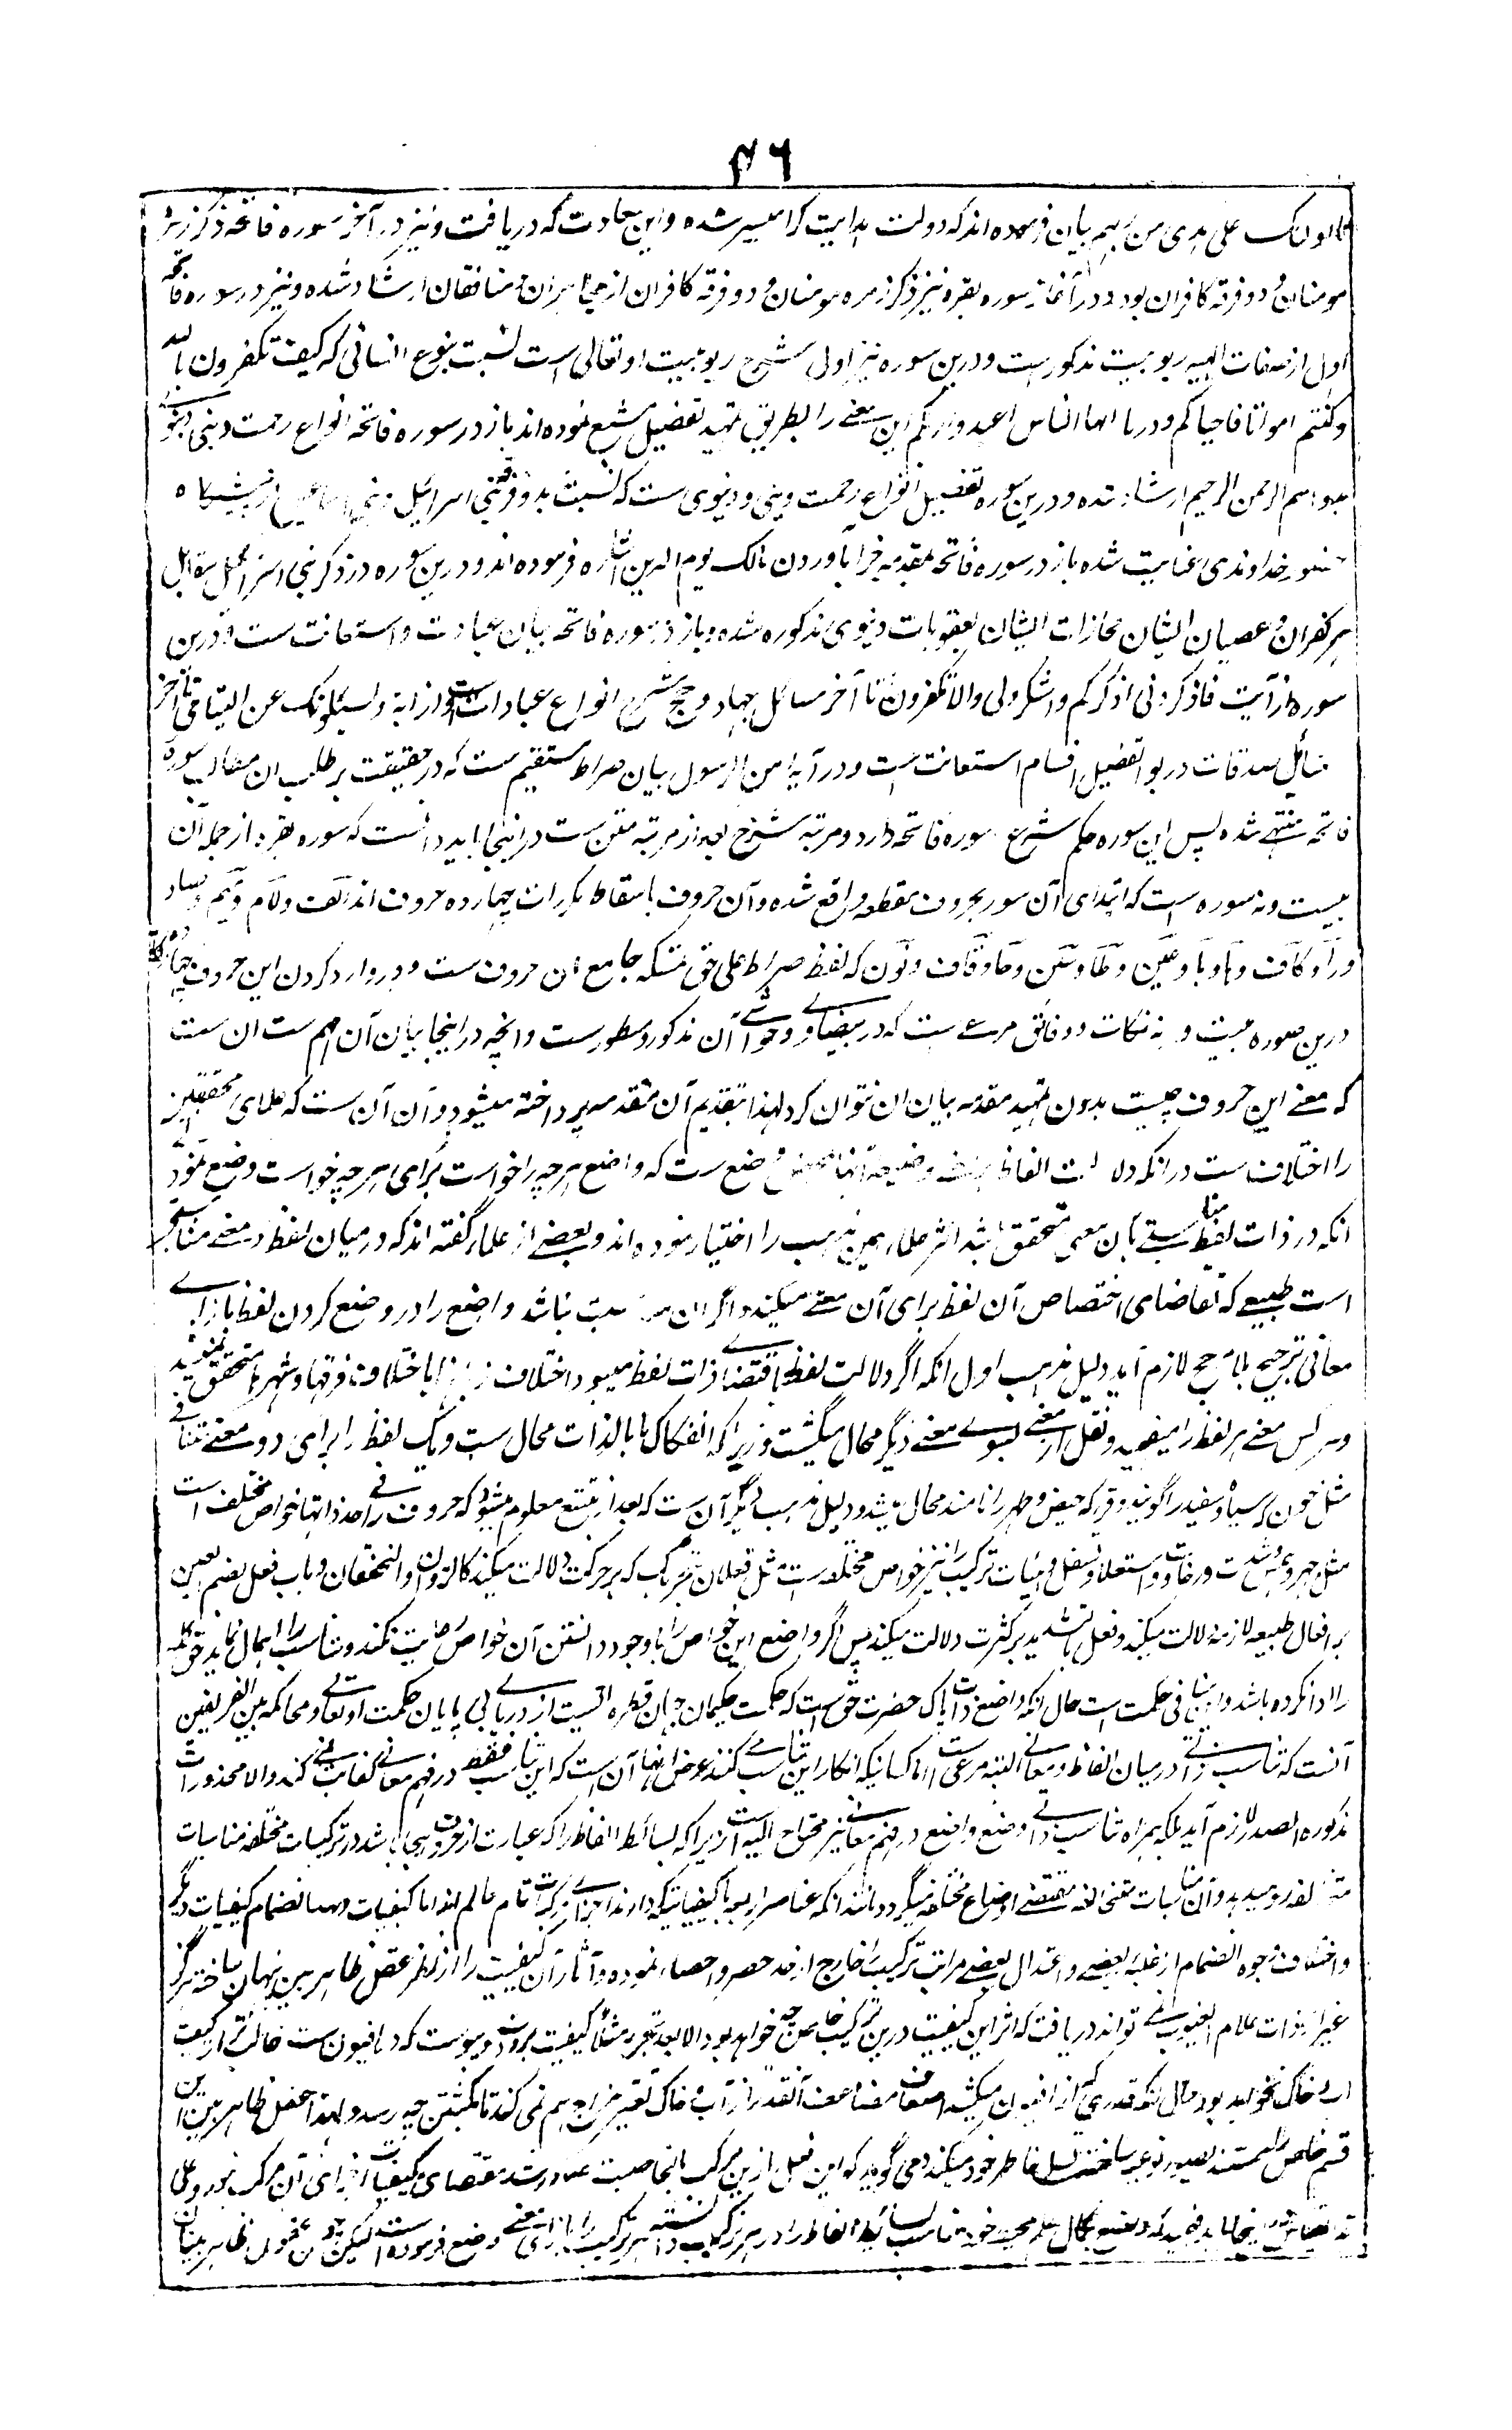 ۴۶
اولئک علی هدی من ربهم بیان فرموده اند که دولت هدایت کرا میسر شده و این سعادت که دریافت و نیز در آخر سوره فاتحه ذکر زمره
مومنان و دو فرقه کافران بود و در آغاز سوره بقره نیز ذکر زمره مومنان و دو فرقه کافران از مجاهران و منافقان ارشاد شده و نیز در سوره فاتحه
اول از صفات الهیه ربوبیت مذکور است و درین سوره نیز اولی شرح ربوبیت او تعالی است نسبت بنوع انسانی که کیف تکفرون بالله
وکنتم امواتا فاحیاکم و در یا ایها الناس اعبدوا ربکم این معنے را بطریق تمهید تفصیل مشبع نموده اند باز در سوره فاتحه انواع رحمت دینی و دنیوی
بدو اسم الرحمن الرحیم ارشاد شده و درین سوره تفصیل انواع رحمت دینی و دنیوی است که نسبت بدو فرقه بنی اسرائیل و بنی اسماعیل از پیشگاه
حضور خداوندی عنایت شده باز در سوره فاتحه بمقدمه جزا بآوردن مالک یوم الدین اشاره فرموده اند و درین سوره در ذکر بنی اسرائیل مقابل
هر کفران و عصیان ایشان مجازات ایشان بعقوبات دنیوی مذکوره شده و باز در سوره فاتحه بیان عبادت و استعانت ست و درین
سوره از آیت فاذکرونی اذکرکم واشکرولی ولا تکفرون تا آخر مسائل جهاد و حج شرح انواع عبادات است و از آیه ویسئلونک عن الیتامی تا آخر
مسائل صدقات و ربوا تفصیل اقسام استعانت است و در آیه امن الرسول بیان صراط مستقیم ست که در حقیقت بر طلب ان مطالب سوره
فاتحه منتهے شده پس این سوره حکم شرح سوره فاتحه دارد و مرتبه شرح بعد از مرتبه متن ست درینجا باید دانست که سوره بقره از جمله آن
بیست و نه سوره است که ابتدای آن سور بحروف مقطعه واقع شده و آن حروف باسقاط مکررات چهارده حروف اند الف و لام و میم و صاد
و را و کاف و ها و یا و عین و طا و سین و حا و قاف و نون که لفظ صراط علی حق نمسکه جامع ان حروف ست و در وارد کردن این حروف چهارده گانه
درین سوره بیست و نه نکات و دقائق مرعے ست که در بیضاوی و حواشے آن مذکور و مسطورست و انچه در اینجا بیان آن مهم ست ان ست
که معنے این حروف چیست بدون تمهید مقدمه بیان ان نتوان کرد لهذا بتقدیم آن مقدمه پرداخته میشود و آن آن ست که علمای محققین
را اختلاف ست درانکه دلالت الفاظ وضعیه آنها وضع ست که واضع هر چه را خواست برای هر چه خواست وضع نمود
انکه در ذات لفظ مناسبتے بآن معنی متحقق باشد اکثر علماء همین مذهب را اختیار نموده اند و بعضے از علماء گفته اند که درمیان لفظ و معنے مناسبتے
است طبیعے که تقاضای اختصاص آن لفظ برای آن معنے میکند و اگر این مناسبت نباشد واضع را در وضع کردن لفظ بازاے
معانی ترجیح بلا مرجح لازم آید دلیل مذهب اول انکه اگر دلالت لفظ باقتضاے ذات لفظ میبود اختلاف زبانها باختلاف فرقها و شهرها متحقق نمیشد
و هر کس معنے هر لفظ را میفهمید و نقل از معنے بسوے معنے دیگر محال میگشت زیرا که انفکاک ما بالذات محال ست و یک لفظ را برای دو معنے متنافے
مثل جون که سیاه و سفید را گویند و قرء که حیض و طهر را نامند محال میشد و دلیل مذهب دیگر آن ست که بعد از تتبع معلوم میشود که حروف را فے حد ذاتها خواص مختلف است
مثل جهر و همس و شدت و رخاوت و استعلا و تسفل و هیئات ترکیب را نیز خواص مختلفه ست مثل فعلان بتحریک که بر حرکت دلالت میکند کالنزوان والخفقان و باب فعل بضم عین
بر افعال طبیعیه لازمه دلالت میکند و فعل بتشدید بر کثرت دلالت میکند پس اگر واضع این خواص را با وجود دانستن آن خواص رعایت نکند و تناسب را اهمال نماید حق کلمه
را ادا نکرده باشد و این منافی حکمت است حال انکه واضع ذات پاک حضرت حق است که حکمت حکیمان جهان قطره ایست از دریاے بی پایان حکمت او تعالے و محاکمه بین الفریقین
آنست که تناسب ذاتے درمیان الفاظ و معانے البته مرعی است اما کسانیکه انکار این تناسب میکنند غرض ایشان آن است که این تناسب فقط در فهم معانے کفایت نمے کند و الا محذورات
مذکوره الصدر لازم آید بلکه همراه تناسب ذاتے وضع واضع در فهم معانے نیز محتاج الیه است زیرا که بسائط الفاظ را که عبارت از حروف هجا باشد در ترکیبات مختلفه مناسبات
متخالفه رو میدهد و آن مناسبات متخالفه مقتضے اوضاع مختلفه میگردد مانند انکه عناصر اربعه با کیفیاتیکه دارند اجزاے مرکبات تمام عالم اند اما کیفیات بسبب انضمام کیفیات دیگر
و اختلاف وجوه انضمام از غلبه بعضے و اعتدال بعضے مراتب ترکیب را خارج از حد حصر و احصاء نموده و آثار آن کیفیت را از نظر عقل ظاهر بین پنهان ساخته هرگز
غیر از ذات علام الغیوب نمے تواند دریافت که اثر این کیفیت درین ترکیب خاص چه خواهد بود الا بعد تجربه مثلا کیفیت برودت و یبوست که در افیون ست خالی از کیفیت
آب و خاک نخواهد بود حال انکه قدری کم از افیون میکشد و اضعاف مضاعف آنقدر از آب و خاک تغییر مزاج هم نمی کند تا بکشتن چه رسد و لهذا عقل ظاهر بین این
قسم خاص را مستند بصورت نوعیه ساخته تسلی خاطر خود میکند و می گوید که این فعل ازین مرکب بالخاصیت صادر شد مقتضای کیفیات اجزای آن مرکب نبود و علی
هذا القیاس در اینجا باید فهمید که واضع بکمال علم محیط خود تناسب بسائط الفاظ را در هر ترکیب دانسته هر ترکیب را بازای معنے وضع فرموده است لیکن چون عقول ظاهر بینان